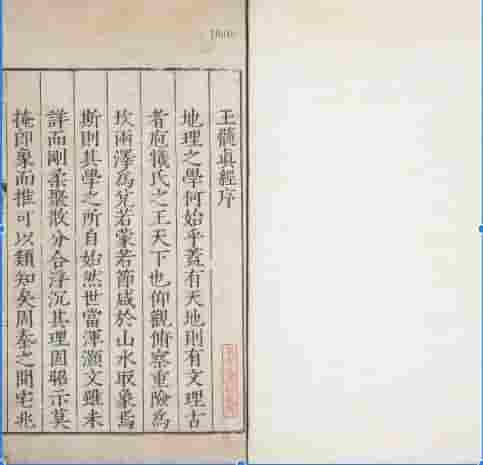 王髓眞經序
地理之學何始乎蓋有天地則有文理古
者庖犧氏之王天下也仰觀俯察重險為
坎兩澤為兌若蒙若節咸於山水取象焉
斯則其學之所自始然世當渾灝文雖未
詳而剛柔聚散分合浮沉其理固昭示莫
掩即象而推可以類知矣周秦之間宅兆